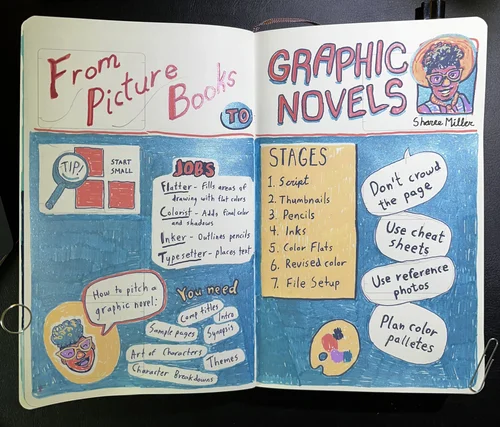 From
Picture
Books
TO
GRAPHIC
NOVELS
Sharee Miller
TIP!
START
SMALL
JOBS
Flatter - Fills areas of
drawing with flat colors
Colorist - Adds final color
and shadows
Inker - Outlines pencils
Typesetter - places text
How to pitch a
graphic novel:
You need
Comp titles
Intro
Sample pages
Synopsis
Art of Characters
Themes
Character Breakdowns
STAGES
1. Script
2. Thumbnails
3. Pencils
4. Inks
5. Color Flats
6. Revised color
7. File Setup
Don't crowd
the page
Use cheat
sheets
Use reference
photos
Plan color
palletes